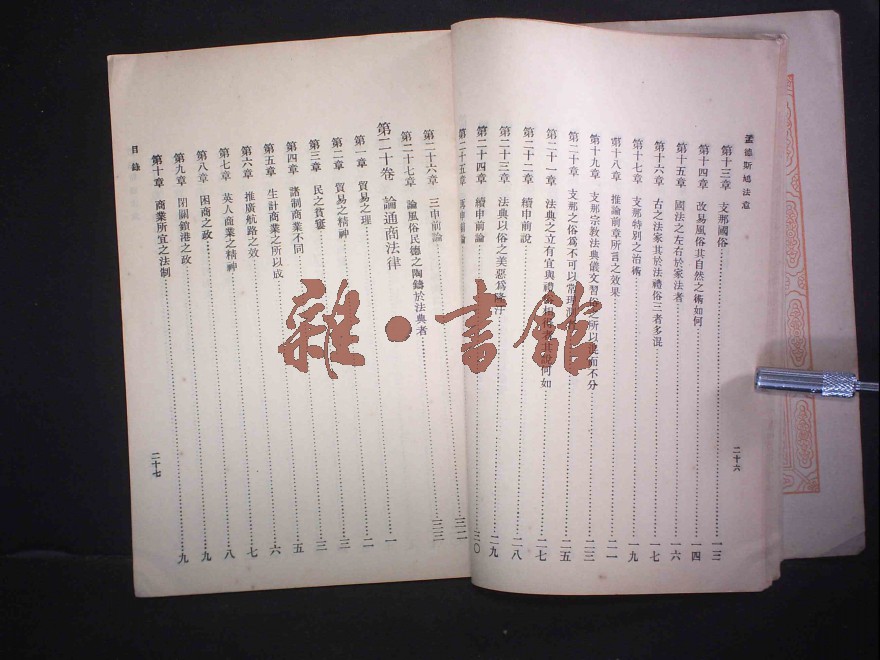 孟德斯鳩法意
第十三章 支那國俗 一三
第十四章 改易風俗其自然之術如何 一四
第十五章 國法之左右於家法者 一六
第十六章 古之法家其於法禮俗三者多混 一七
第十七章 支那特別之治術 一九
第十八章 推論前章所言之效果 二一
第十九章 支那宗教法典儀文習俗所以混而不分 二三
第二十章 支那之俗爲不可以常理 二五
第二十一章 法典之立有宜與禮俗相 其說何如 二七
第二十二章 續申前說 二八
第二十三章 法典以俗之美惡爲隆汙 二九
第二十四章 續申前論 三〇
第二十五章 再申前論
二十六
第二十六章 三申前論 三二
第二十七章 論風俗民德之陶鑄於法典者 三三
第二十卷 論通商法律 一
第一章 貿易之理 二
第二章 貿易之精神 三
第三章 民之貧窶 三
第四章 諸制商業不同 五
第五章 生計商業之所以成 六
第六章 推廣航路之效 七
第七章 英人商業之精神 八
第八章 困商之政 九
第九章 閉關鎖港之政 九
第十章 商業所宜之法制
目錄
二十七
雜·書館